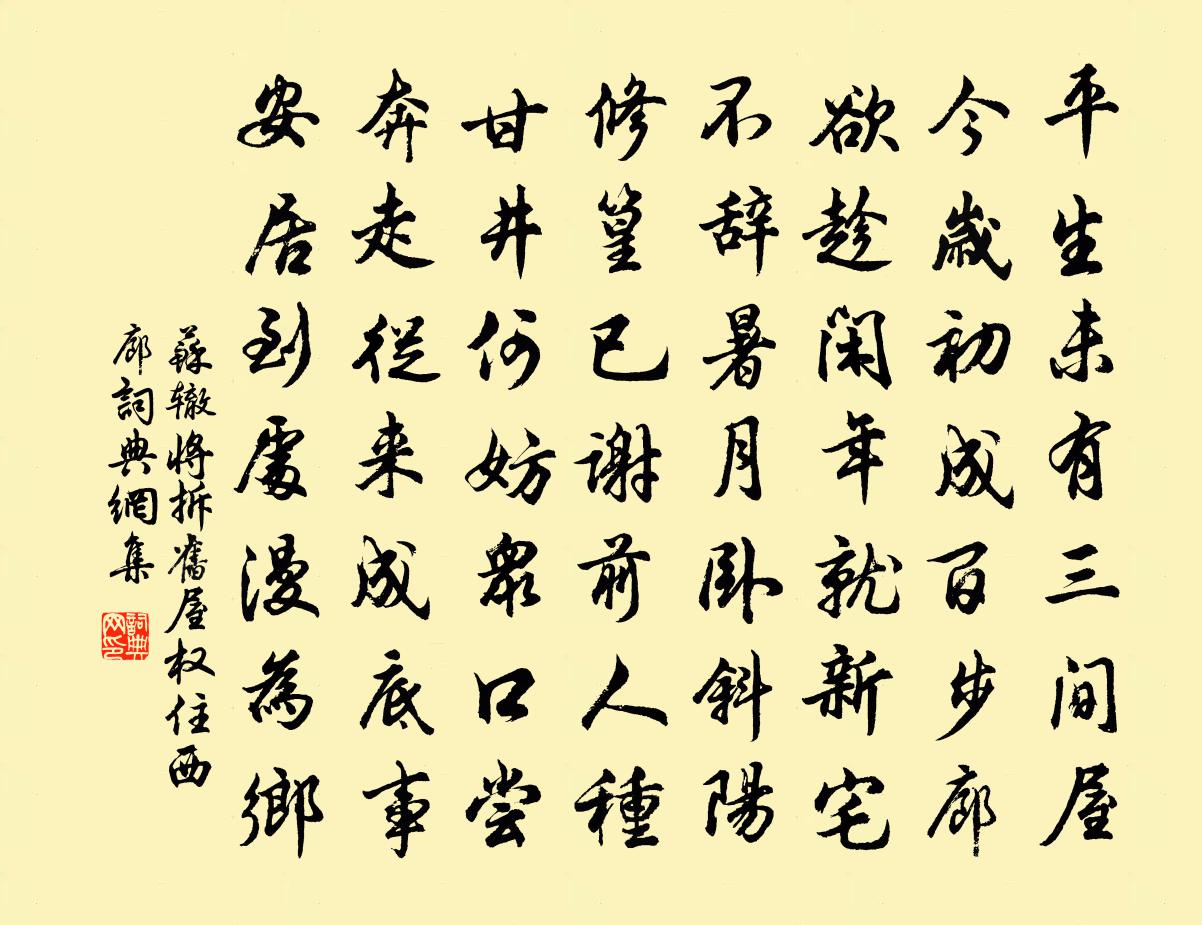 平生未有三间屋
今歳初成百步廊
欲趁閑年就新宅
不辞暑月卧斜陽
修篁已謝前人種
甘井何妨衆口尝
奔走從来成底事
安居到處漫為鄉
蘇辙將拆舊屋权住西
廊詞典網集
詞典网印